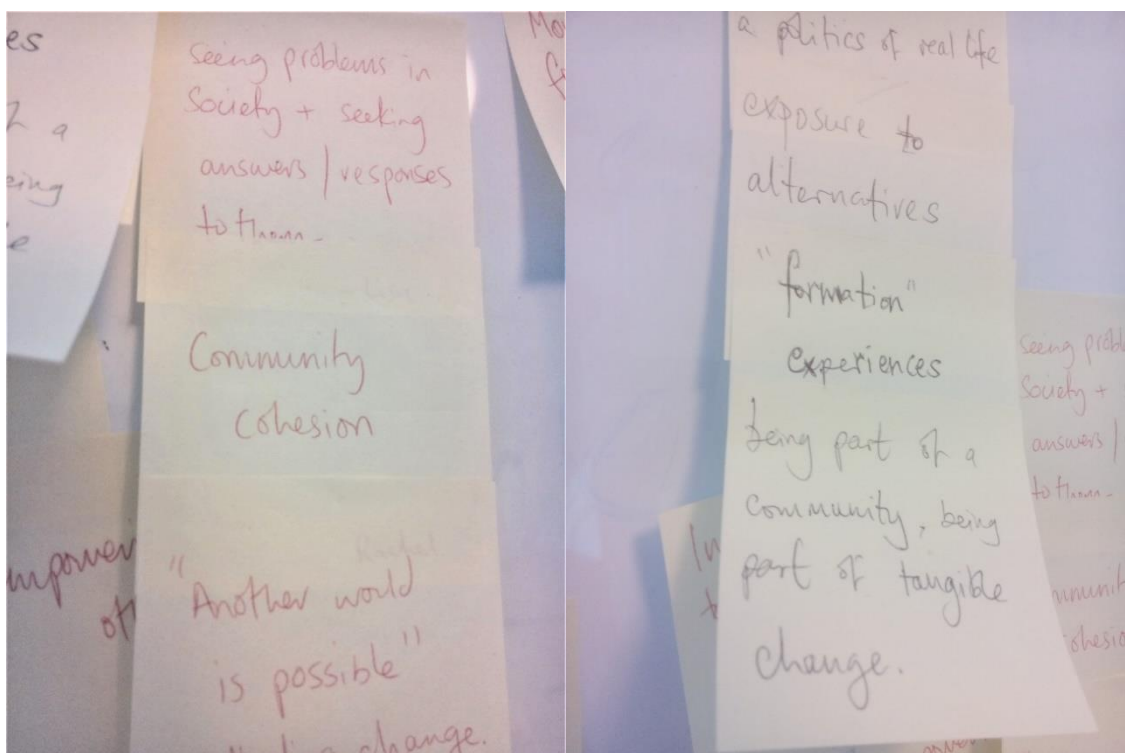 es
a
eing
e
seeing problems in
Society + seeking
answers / responses
to
Community
Cohesion
"Another would
is possible"
change.
mpower
Mo
a politics of real life
exposure to
alternatives
"formation"
experiences
being part of a
community, being
part of tangible
change.
seeing probl
Society +
answers /
to
mmunit
ohesio
In
t